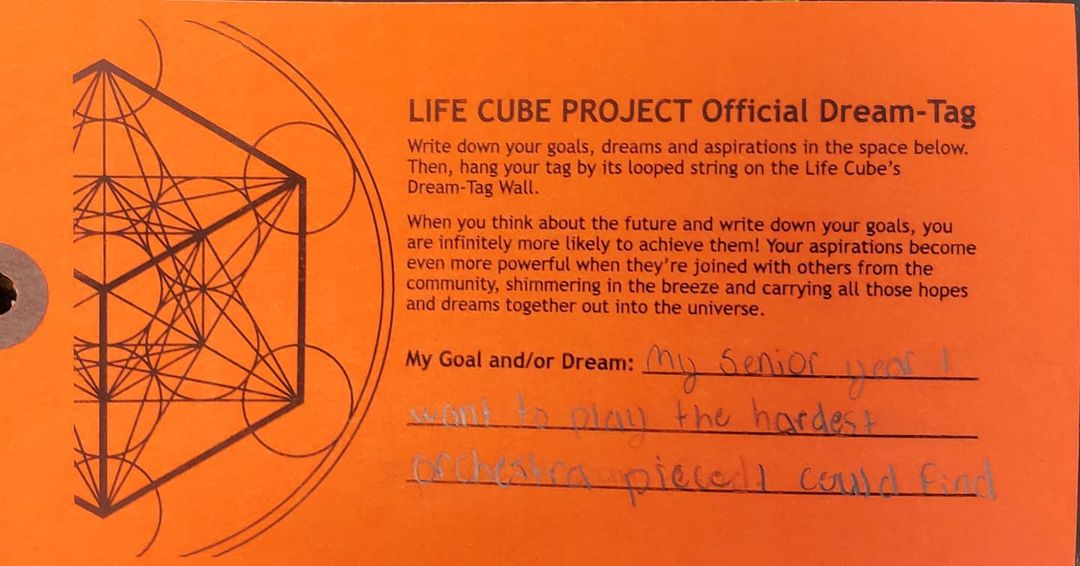 LIFE CUBE PROJECT Official Dream-Tag
Write down your goals, dreams and aspirations in the space below.
Then, hang your tag by its looped string on the Life Cube's
Dream-Tag Wall.
When you think about the future and write down your goals, you
are infinitely more likely to achieve them! Your aspirations become
even more powerful when they're joined with others from the
community, shimmering in the breeze and carrying all those hopes
and dreams together out into the universe.
My Goal and/or Dream: My Senior year I
want to play the hardest
orchestra piece I could find